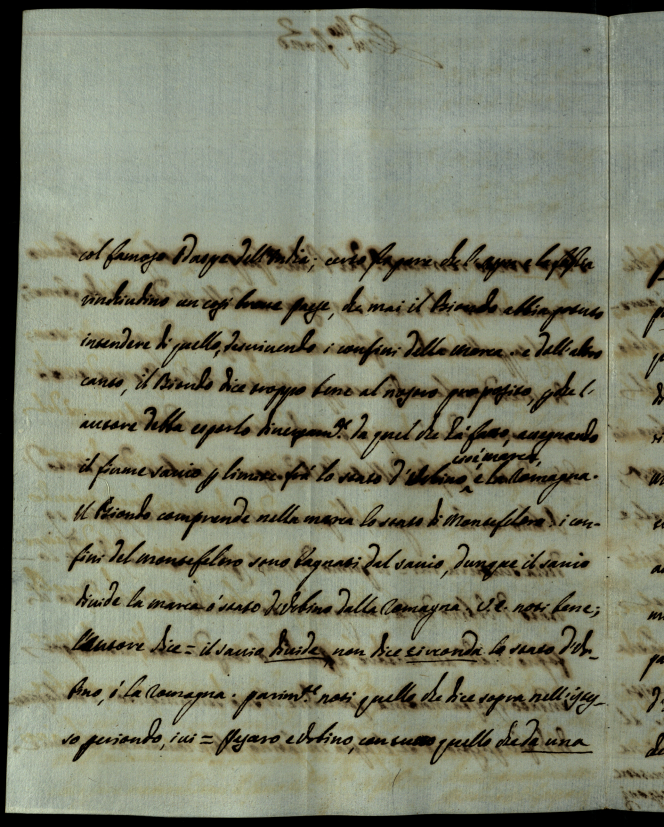 col famoso Idaspe dell'India; certo fa pare che l'acqua e la
rinchiudino un così breve paese, che mai il Biondo abbia potuto
intendere di quello, descrivendo i confini della Marca. e dall'altro
canto, il Biondo dice troppo bene al nostro proposito, che l'
autore debba esporlo da quel che ha fatto, assegnando
il fiume savio p limite frà lo stato d'Urbino cioè marca, e la Romagna.
Il Biondo comprende nella marca lo stato di Montefeltro: i con-
fini del montefeltro sono bagnati dal savio, dunque il savio
divide la marca ò stato d'Urbino dalla romagna. V.E. noti bene;
l'Autore dice = il savio divide, non dice circonda lo stato d'Ur-
bino, ò la romagna. parimte noti quello che dice sopra nell'istes-
so periodo, ivi = Pesaro e Urbino, con tutto quello che da una